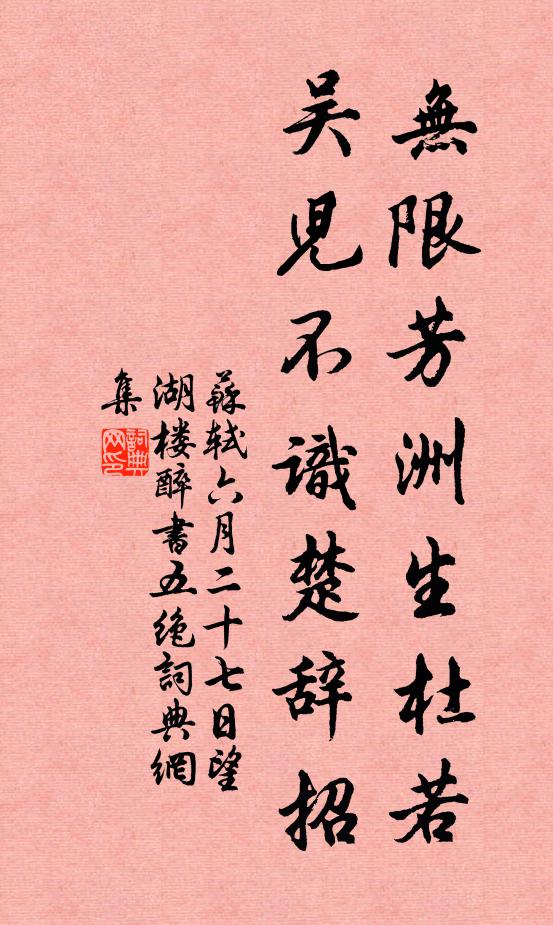 無限芳洲生杜若
吳児不識楚辞招
蘇軾六月二十七日望
湖楼醉書五絶詞典網
集
詞典网印